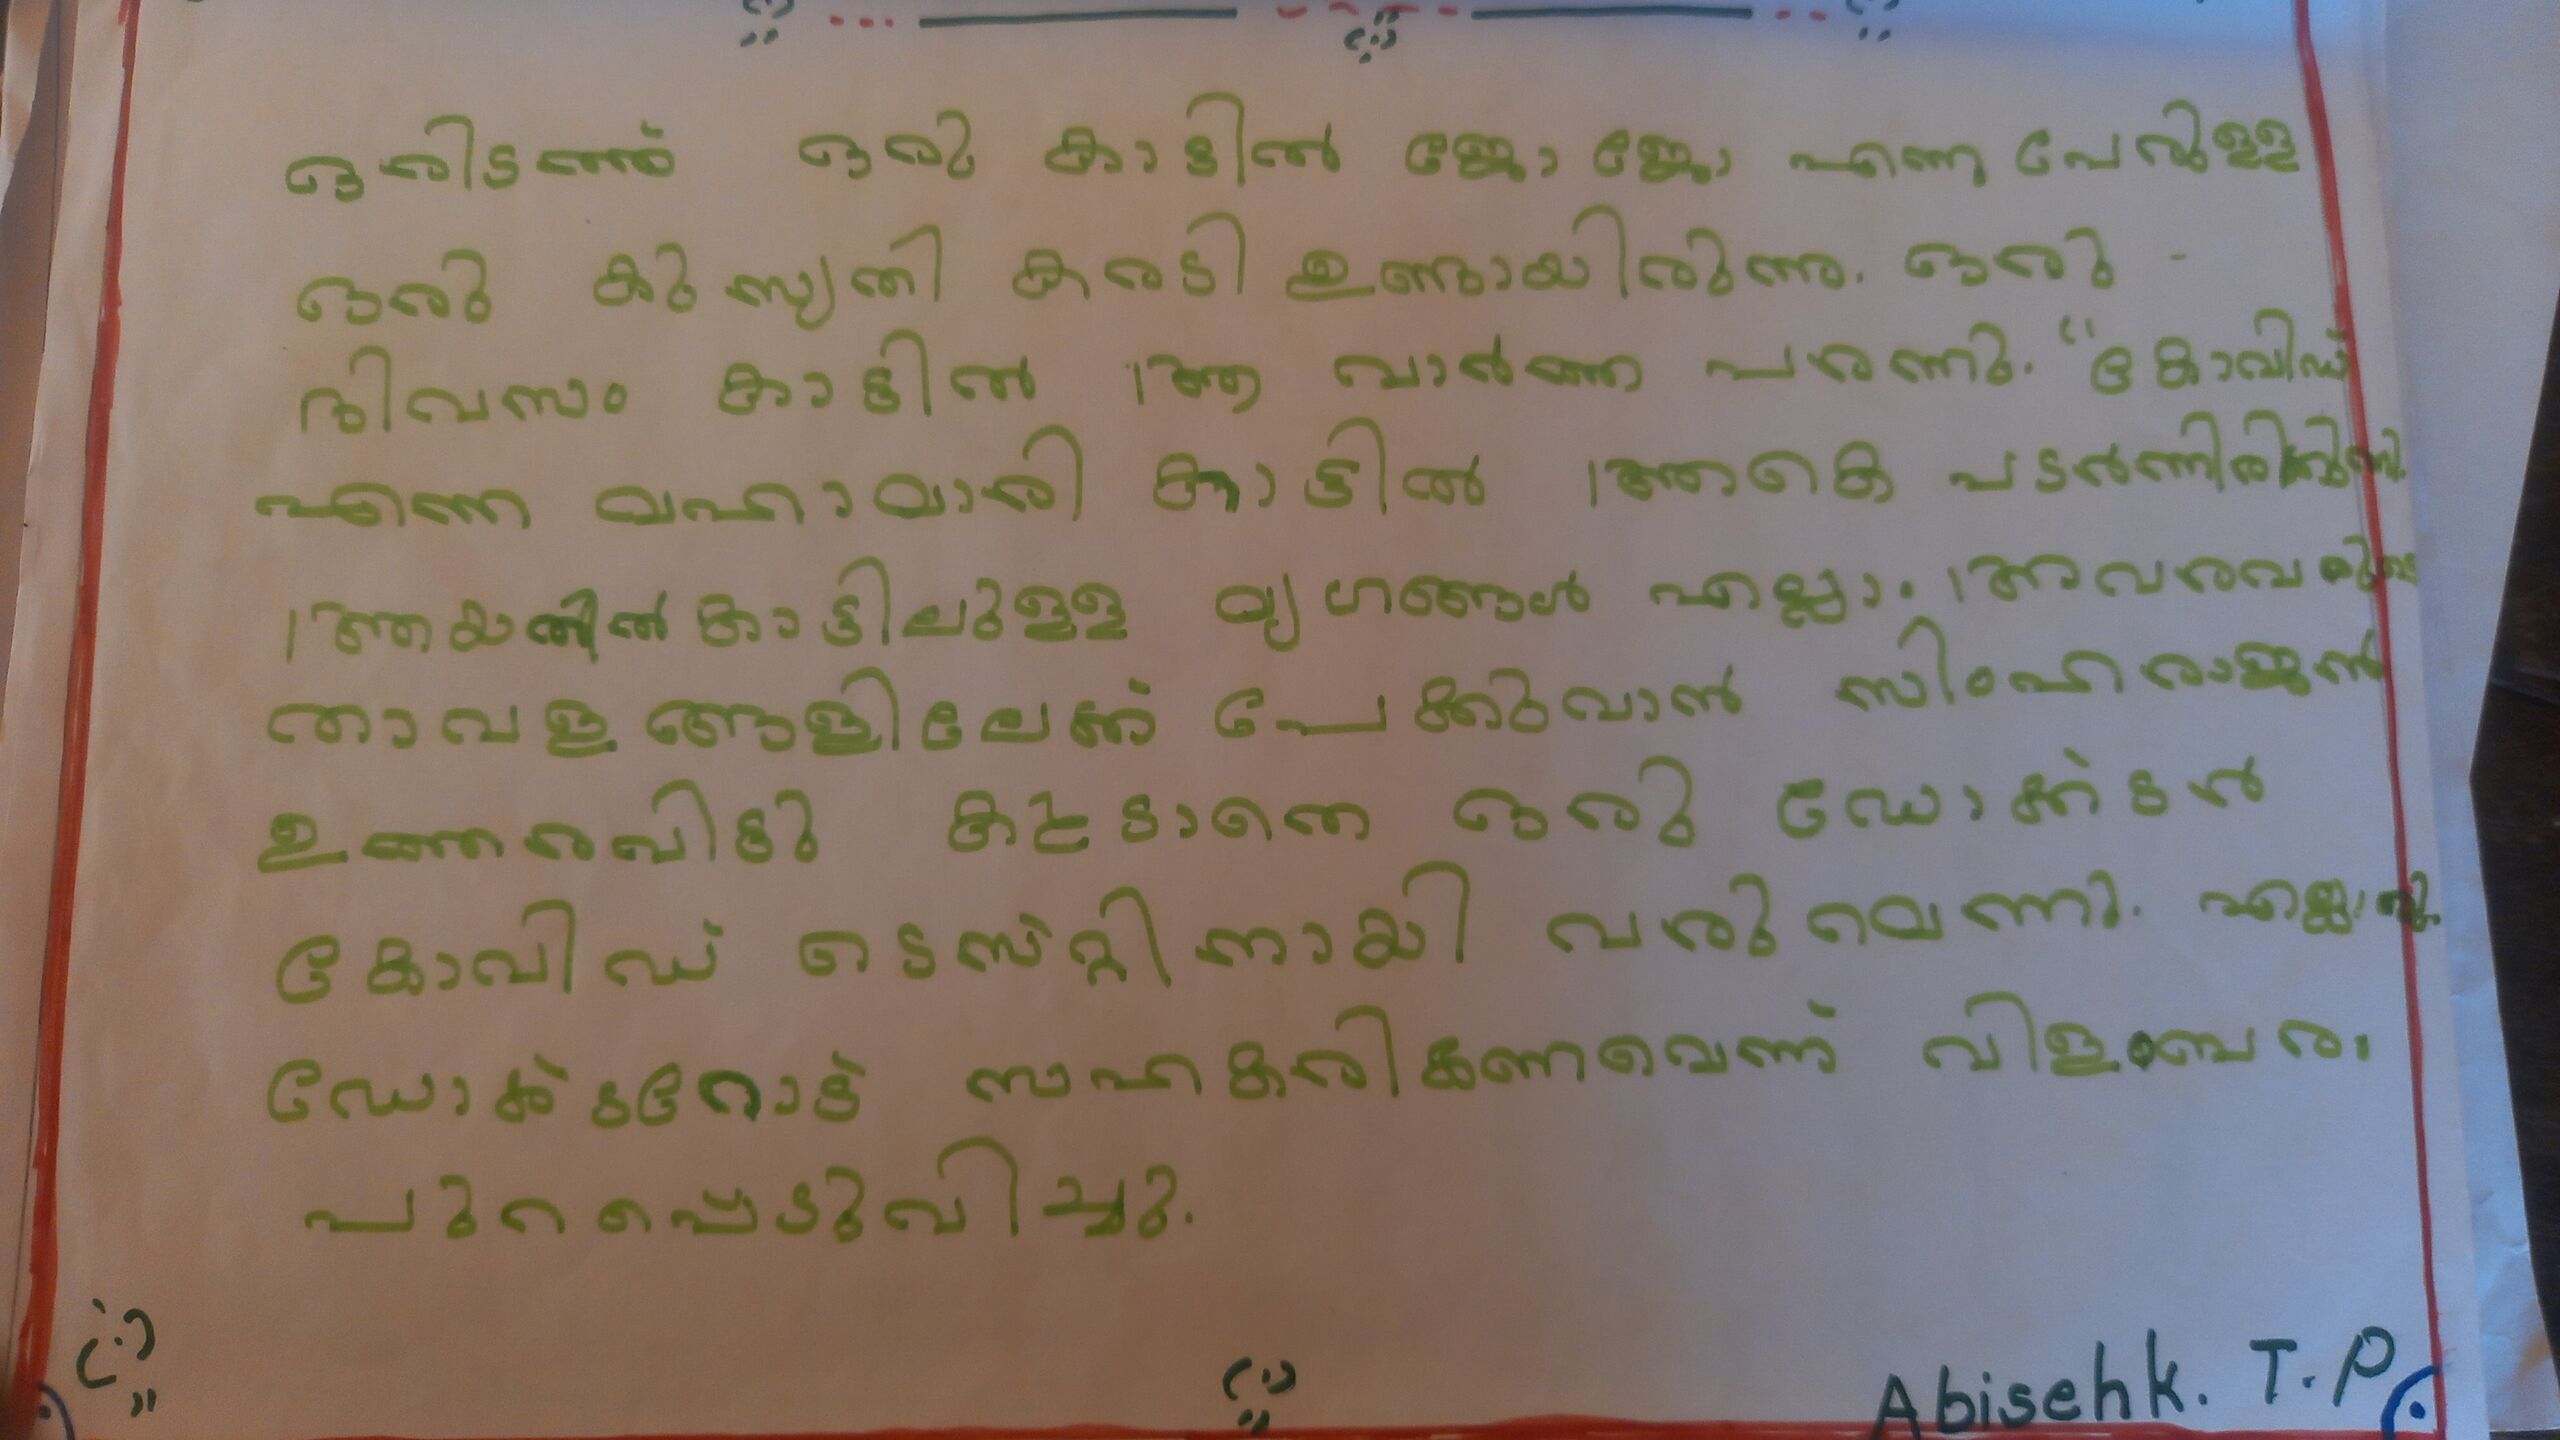 ഒരിടത്ത് ഒരു കാട്ടിൽ ജോജോ എന്ന പേരുള്ള
ഒരു കുസൃതി കരടി ഉണ്ടായിരുന്നു. ഒരു -
ദിവസം കാട്ടിൽ ആ വാർത്ത പരന്നു. "കോവിഡ്
എന്ന മഹാമാരി കാട്ടിൽ ആകെ പടർന്നിരിക്കുന്നു.
ആയതിനാൽ കാട്ടിലുള്ള മൃഗങ്ങൾ എല്ലാം. അവരവരുടെ
താവളങ്ങളിലേക്ക് പേക്കുവാൻ സിംഹരാജൻ
ഉത്തരവിട്ടു കൂടാതെ ഒരു ഡോക്ടർ
കോവിഡ് ടെസ്റ്റിനായി വരുമെന്നും. എല്ലാവരും
ഡോക്ടറോട് സഹകരിക്കണമെന്ന് വിളംബരം
പുറപ്പെടുവിച്ചു.
Abisehk. T.P